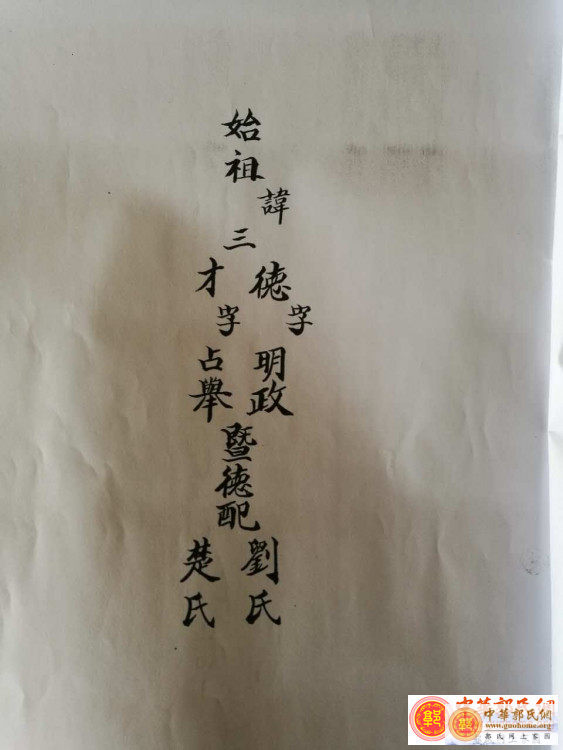 始祖
諱
三
德字明政
才字占舉
暨德配
劉氏
楚氏
中華郭氏網
中華郭氏網
www.guohome.org
郭氏网上家园